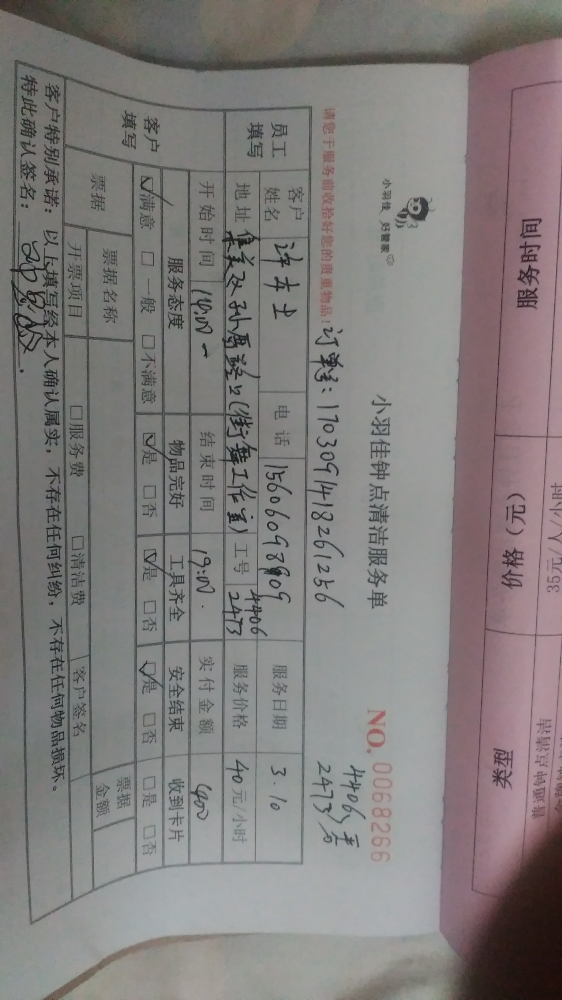 小羽佳 好管家
小羽佳钟点清洁服务单
NO. 0068266
订单号：1703091418261256
4406
2473
请您于服务前收拾好您的贵重物品！
员工填写
客户姓名 许女士 电话 服务日期 3.10
地址 工号 4406 2473 服务价格 40元/小时
开始时间 14:00 结束时间 19:00 实付金额 400
客户填写
服务态度 物品完好 工具齐全 安全结束 收到卡片
☑满意 □一般 □不满意 ☑是 □否 ☑是 □否 ☑是 □否 □是 □否
票据 票据名称 票据金额
开票项目 □服务费 □清洁费 客户签名
客户特别承诺：以上填写经本人确认属实，不存在任何纠纷，不存在任何物品损坏。
特此确认签名：
服务时间 价格（元） 类型
35元/人/小时 普通钟点清洁